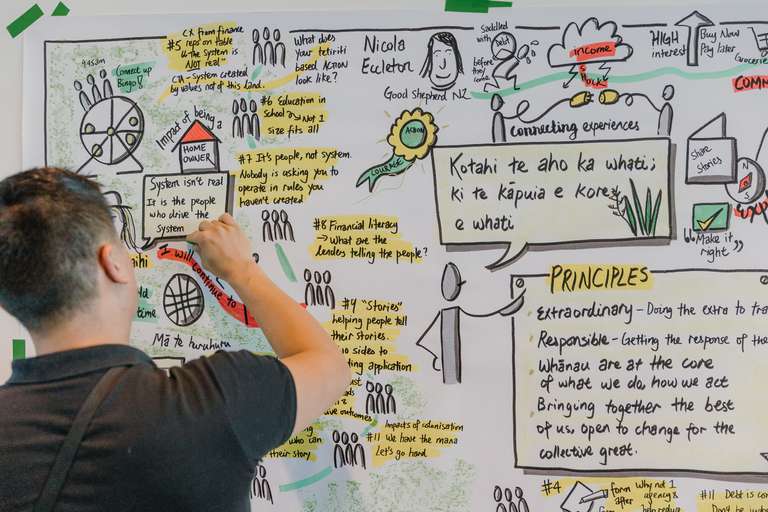 9:45am
Connect up
Bingo!
Impact of being a
HOME
OWNER
System isn't real
It is the people
who drive the
System
I will continue to
time
Mā te huruhuru
CX from finance
#5 reps on table
"The System is
NOT real"
CIA - System created
by values not of this land.
#6 Education in
School → Not 1
size fits all
#7 It's people, not system.
Nobody is asking you to
operate in rules you
haven't created
#8 Financial literacy
→ What are the
lenders telling the people?
#9 "Stories"
helping people tell
their stories.
sides to
application
outcomes
who can
their story
Impacts of colonisation
#11 We have the mana
Let's go hard
What does
your tetiriti
based Action
look like?
Nicola
Eccleton
Good Shepherd NZ
ACTION
COURAGE
Saddled
with
DEBT
before
they
come
Income
Shock
HIGH
interest
Buy Now
Pay later
Groceries
COMM
connecting experiences
Share
Stories
"Make it
right"
Kotahi te aho ka whati;
ki te kāpuia e kore
e whati
PRINCIPLES
Extraordinary - Doing the extra to tra
Responsible - Getting the response of the
Whānau are at the core
of what we do, how we act
Bringing together the best
of us, open to change for the
collective great.
#4
form
after
Why not 1
agency &
help reduce
#11 Debt is co
Don't be